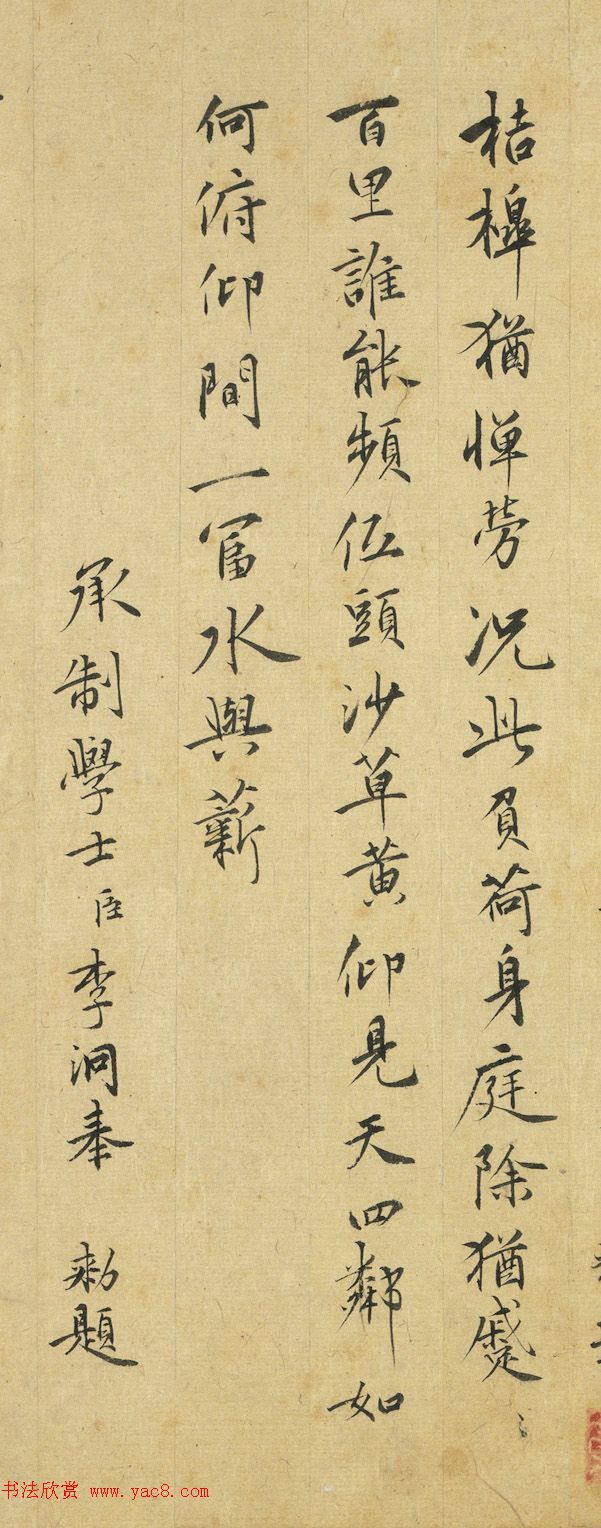 桔槔猶憚勞况此負荷身庭除猶蹙〻
百里誰能頻低頭沙草黄仰見天四鄰如
何俯仰間一富水與薪
承制學士臣李泂奉 勑題
书法欣赏 www.yac8.com